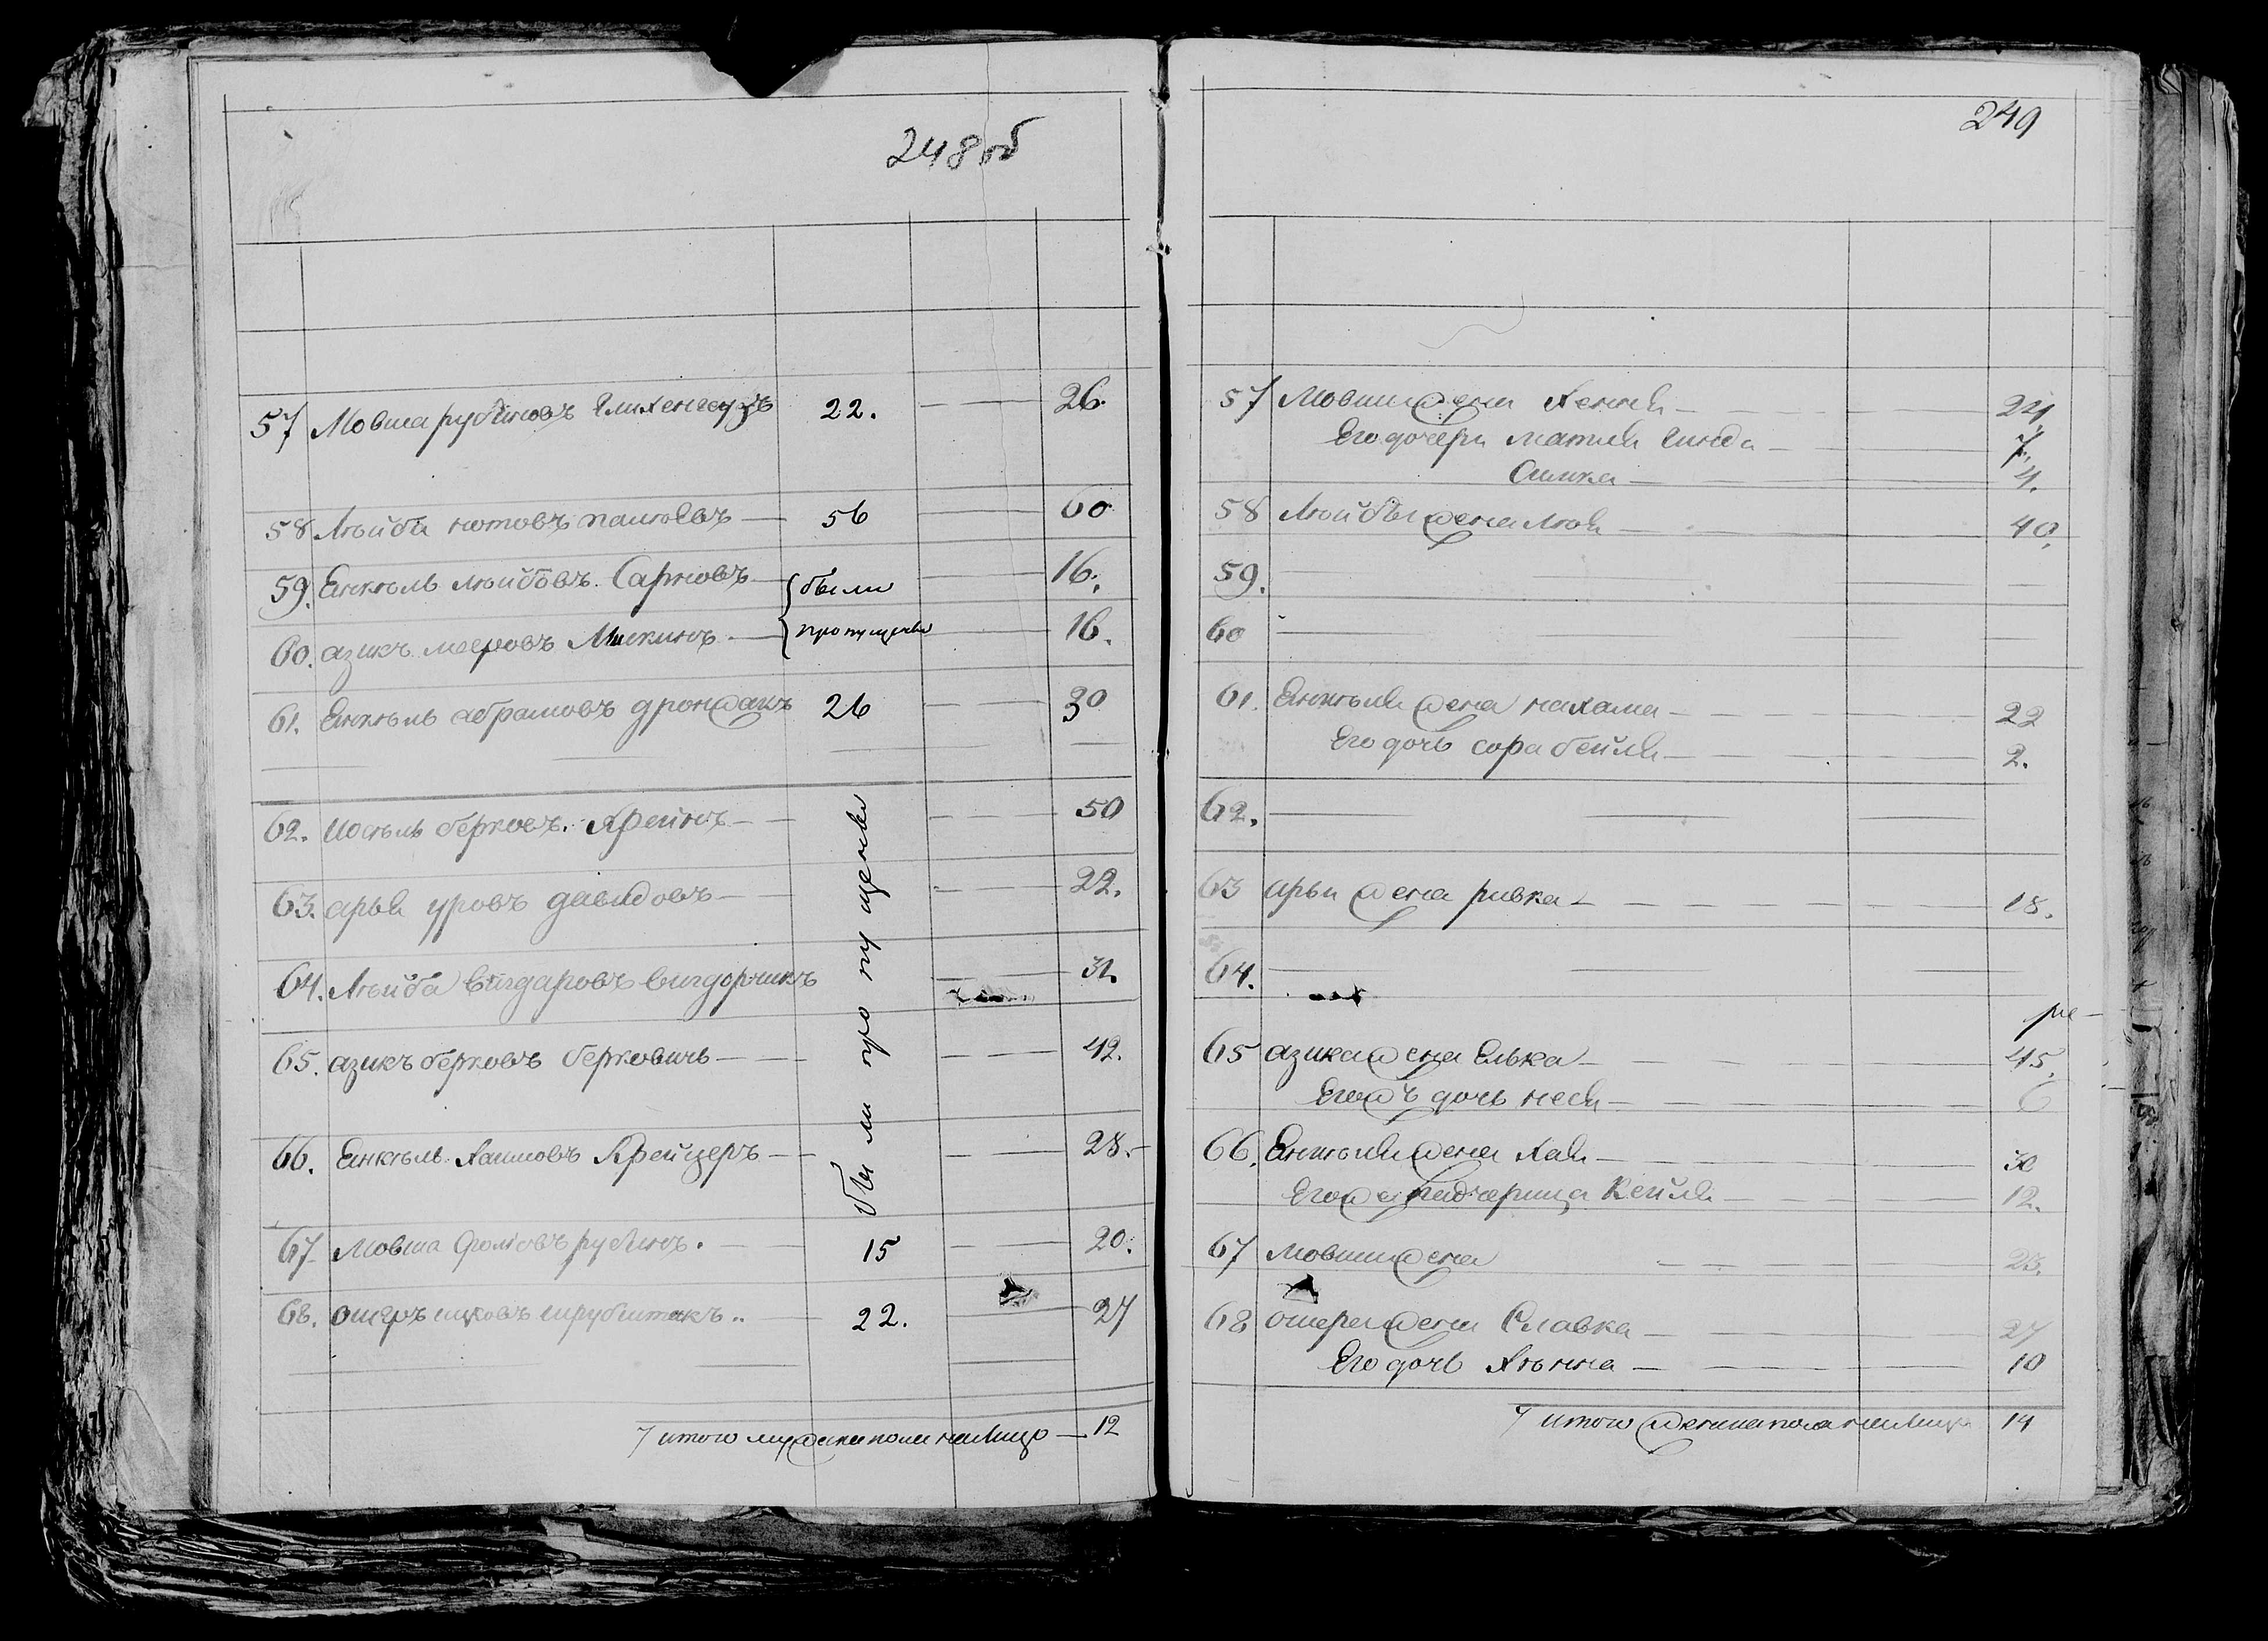 248 об
57 Мовша рубиновъ Глихенгаузъ 22. 26.
58 Лейба нотовъ 56 60
59. Енкель лейбовъ. Сарновъ были 16.
60. азикъ мееровъ Мишкинъ пропущены 16.
61. Енкель абрамовъ дронжакъ 26 30
62. иосель берковъ. Крейнъ 50
63. арья уровъ давидовъ 22.
64. Лейба вигдаровъ вигдорчикъ 31.
65. азикъ берковъ берковичь 42.
66. Енкель. Хаимовъ Крейцеръ 28.
были пропущены
67 Мовша рубинъ. 20.
15
68. ошеръ ицковъ 22. 27
итого мужеска пола налицо 12
249
57 Мовши жена Хення 24
Его дочери матля гинда 7
Симка 4.
58 Лейбы жена лея 40.
59.
60
61. Енкеля жена нахама 22
Его дочь сора бейля 2.
62.
63 арьи жена ривка 18.
64.
65 азика жена Елька 45.
Егожъ дочь неся 6
66. Енкеля жена Хая 30
Егоже падчерица Кейля 12.
67 мовши жена 23.
68 ошера жена Славка 27
Его дочь Хенна 10
итого женска пола налицо 14